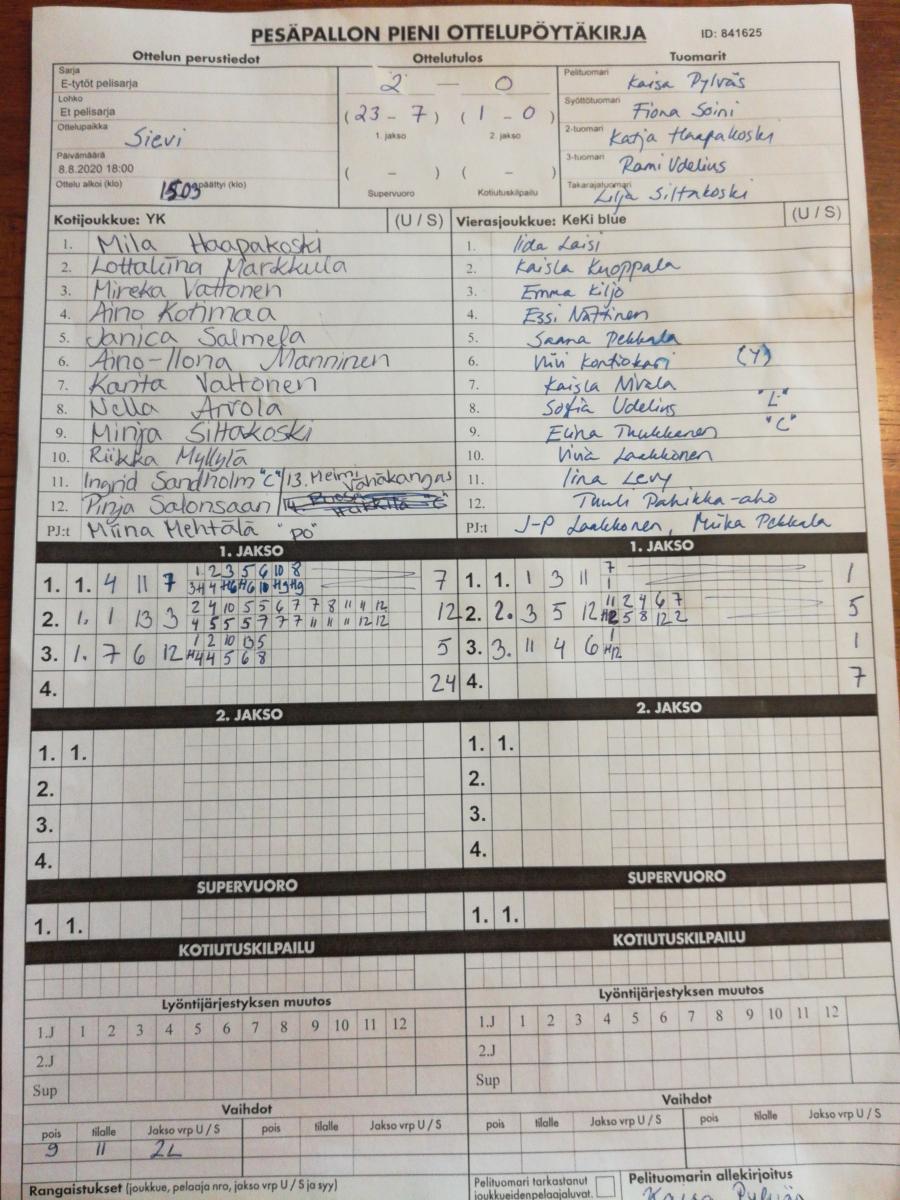 PESÄPALLON PIENI OTTELUPÖYTÄKIRJA ID: 841625
Ottelun perustiedot Ottelutulos Tuomarit
Sarja
E-tytöt pelisarja
Lohko
Et pelisarja
Ottelupaikka
Sievi
Päivämäärä
8.8.2020 18:00
Ottelu alkoi (klo) 1503 päättyi (klo)
2 — 0
(23 - 7) (1 - 0)
1. jakso 2. jakso
( - ) ( - )
Supervuoro Kotiutuskilpailu
Pelituomari Kaisa Pylväs
Syöttötuomari Fiona Soini
2-tuomari Katja Haapakoski
3-tuomari Rami Udelius
Takarajatuomari Lilja Siltakoski
Kotijoukkue: YK (U / S)
1. Mila Haapakoski
2. Lottaliina Markkula
3. Mireka Vattonen
4. Aino Kotimaa
5. Janica Salmela
6. Aino-Ilona Manninen
7. Kanta Vattonen
8. Nella Arvola
9. Minja Siltakoski
10. Riikka Myllylä
11. Ingrid Sandholm "C" /13. Helmi Vähäkangas
12. Pinja Salonsaari /14.
PJ:t Miina Mehtälä "PO"
Vierasjoukkue: KeKi blue (U / S)
1. Iida Laisi
2. Kaisla Knoppala
3. Emma Kiljo
4. Essi Nättinen
5. Saana Pekkala
6. Viivi Kontiokari (Y)
7. Kaisla Nivala
8. Sofia Udelius "L"
9. Elina Thukkanen "C"
10. Viivi Laakkonen
11. Iina Levy
12. Tuuli Pahikka-aho
PJ:t J-P Laakkonen, Miika Pekkala
1. JAKSO
1. 1. 4 11 7 7
1 2 3 5 6 10 8
2. 1. 1 13 3 12
2 4 10 5 5 6 7 7 8 11 11 12
4 5 5 5 7 7 7 11 11 11 12 12
3. 1. 7 6 12 5
1 2 10 13 5
H4 4 5 6 8
4. 24
1. JAKSO
1. 1. 1 3 11 1
7
1
2. 2. 3 5 12 5
11 2 4 6 7
5 8 12 2
3. 3. 11 4 6 1
1
H12
4. 7
2. JAKSO
1. 1.
2.
3.
4.
2. JAKSO
1. 1.
2.
3.
4.
SUPERVUORO
1. 1.
SUPERVUORO
1. 1.
KOTIUTUSKILPAILU
KOTIUTUSKILPAILU
Lyöntijärjestyksen muutos
1.J 1 2 3 4 5 6 7 8 9 10 11 12
2.J
Sup
Lyöntijärjestyksen muutos
1.J 1 2 3 4 5 6 7 8 9 10 11 12
2.J
Sup
Vaihdot
pois tilalle Jakso vrp U / S pois tilalle Jakso vrp U / S
9 11 2L
Vaihdot
pois tilalle Jakso vrp U / S pois tilalle Jakso vrp U / S
Rangaistukset (joukkue, pelaaja nro, jakso vrp U / S ja syy)
Pelituomari tarkastanut
joukkueidenpelaajaluvat.
Pelituomarin allekirjoitus
Kaisa Pylväs